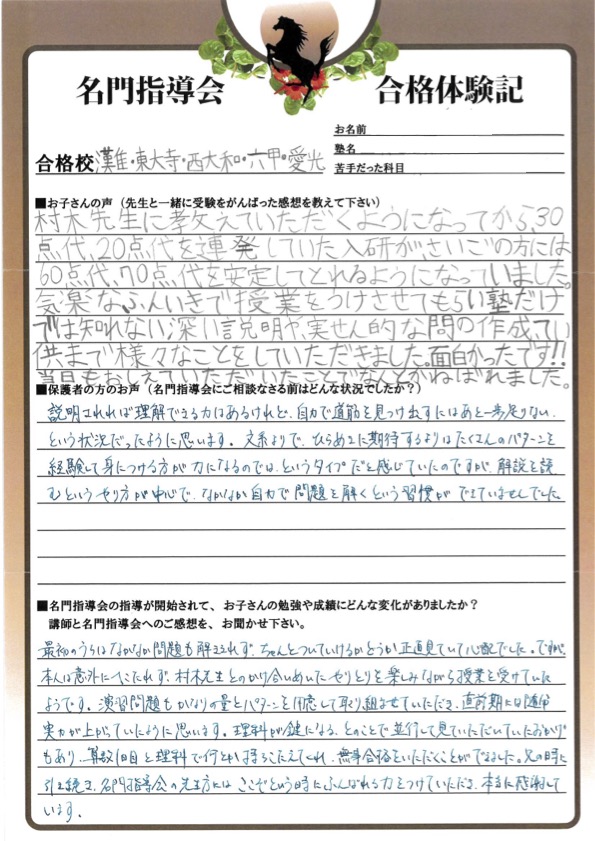 名門指導会 合格体験記
お名前
塾名
苦手だった科目
合格校 灘・東大寺・西大和・六甲・愛光
■お子さんの声（先生と一緒に受験をがんばった感想を教えて下さい）
村木先生に教えていただくようになってから、30
点代、20点代を連発していた入研が、さいごの方には
60点代、70点代を安定してとれるようになっていました。
気楽なふんいきで授業をつけさせてもらい塾だけ
では知れない深い説明や、実せん的な問の作成てい
供まで様々なことをしていただきました。面白かったです!!
当日もおしえていただいたことでなんとかねばれました。
■保護者の方のお声（名門指導会にご相談なさる前はどんな状況でしたか？）
説明されれば理解できる力はあるけれど、自力で道筋を見つけ出すにはあと一歩足りない、
という状況だったように思います。文系よりで、ひらめきに期待するよりはたくさんのパターンを
経験して身につける方が力になるのでは、というタイプだと感じていたのですが、解説を読
むというやり方が中心で、なかなか自力で問題を解くという習慣ができていませんでした。
■名門指導会の指導が開始されて、お子さんの勉強や成績にどんな変化がありましたか？
講師と名門指導会へのご感想を、お聞かせ下さい。
最初のうちはなかなか問題も解ききれず、ちゃんとついていけるかどうか正直見ていて心配でした。ですが、
本人は意外にへこたれず、村木先生とのかけ合いめいたやりとりを楽しみながら授業を受けていた
ようです。演習問題もかなりの量とパターンを用意して取り組ませていただき、直前期には随分
実力が上がっていたように思います。理科が鍵になる、とのことで並行して見ていただいていたおかげ
もあり、算数1日目と理科で何とか持ちこたえてくれ、無事合格をいただくことができました。兄の時に
引き続き、名門指導会の先生方には、ここぞという時にふんばれる力をつけていただき、本当に感謝して
います。